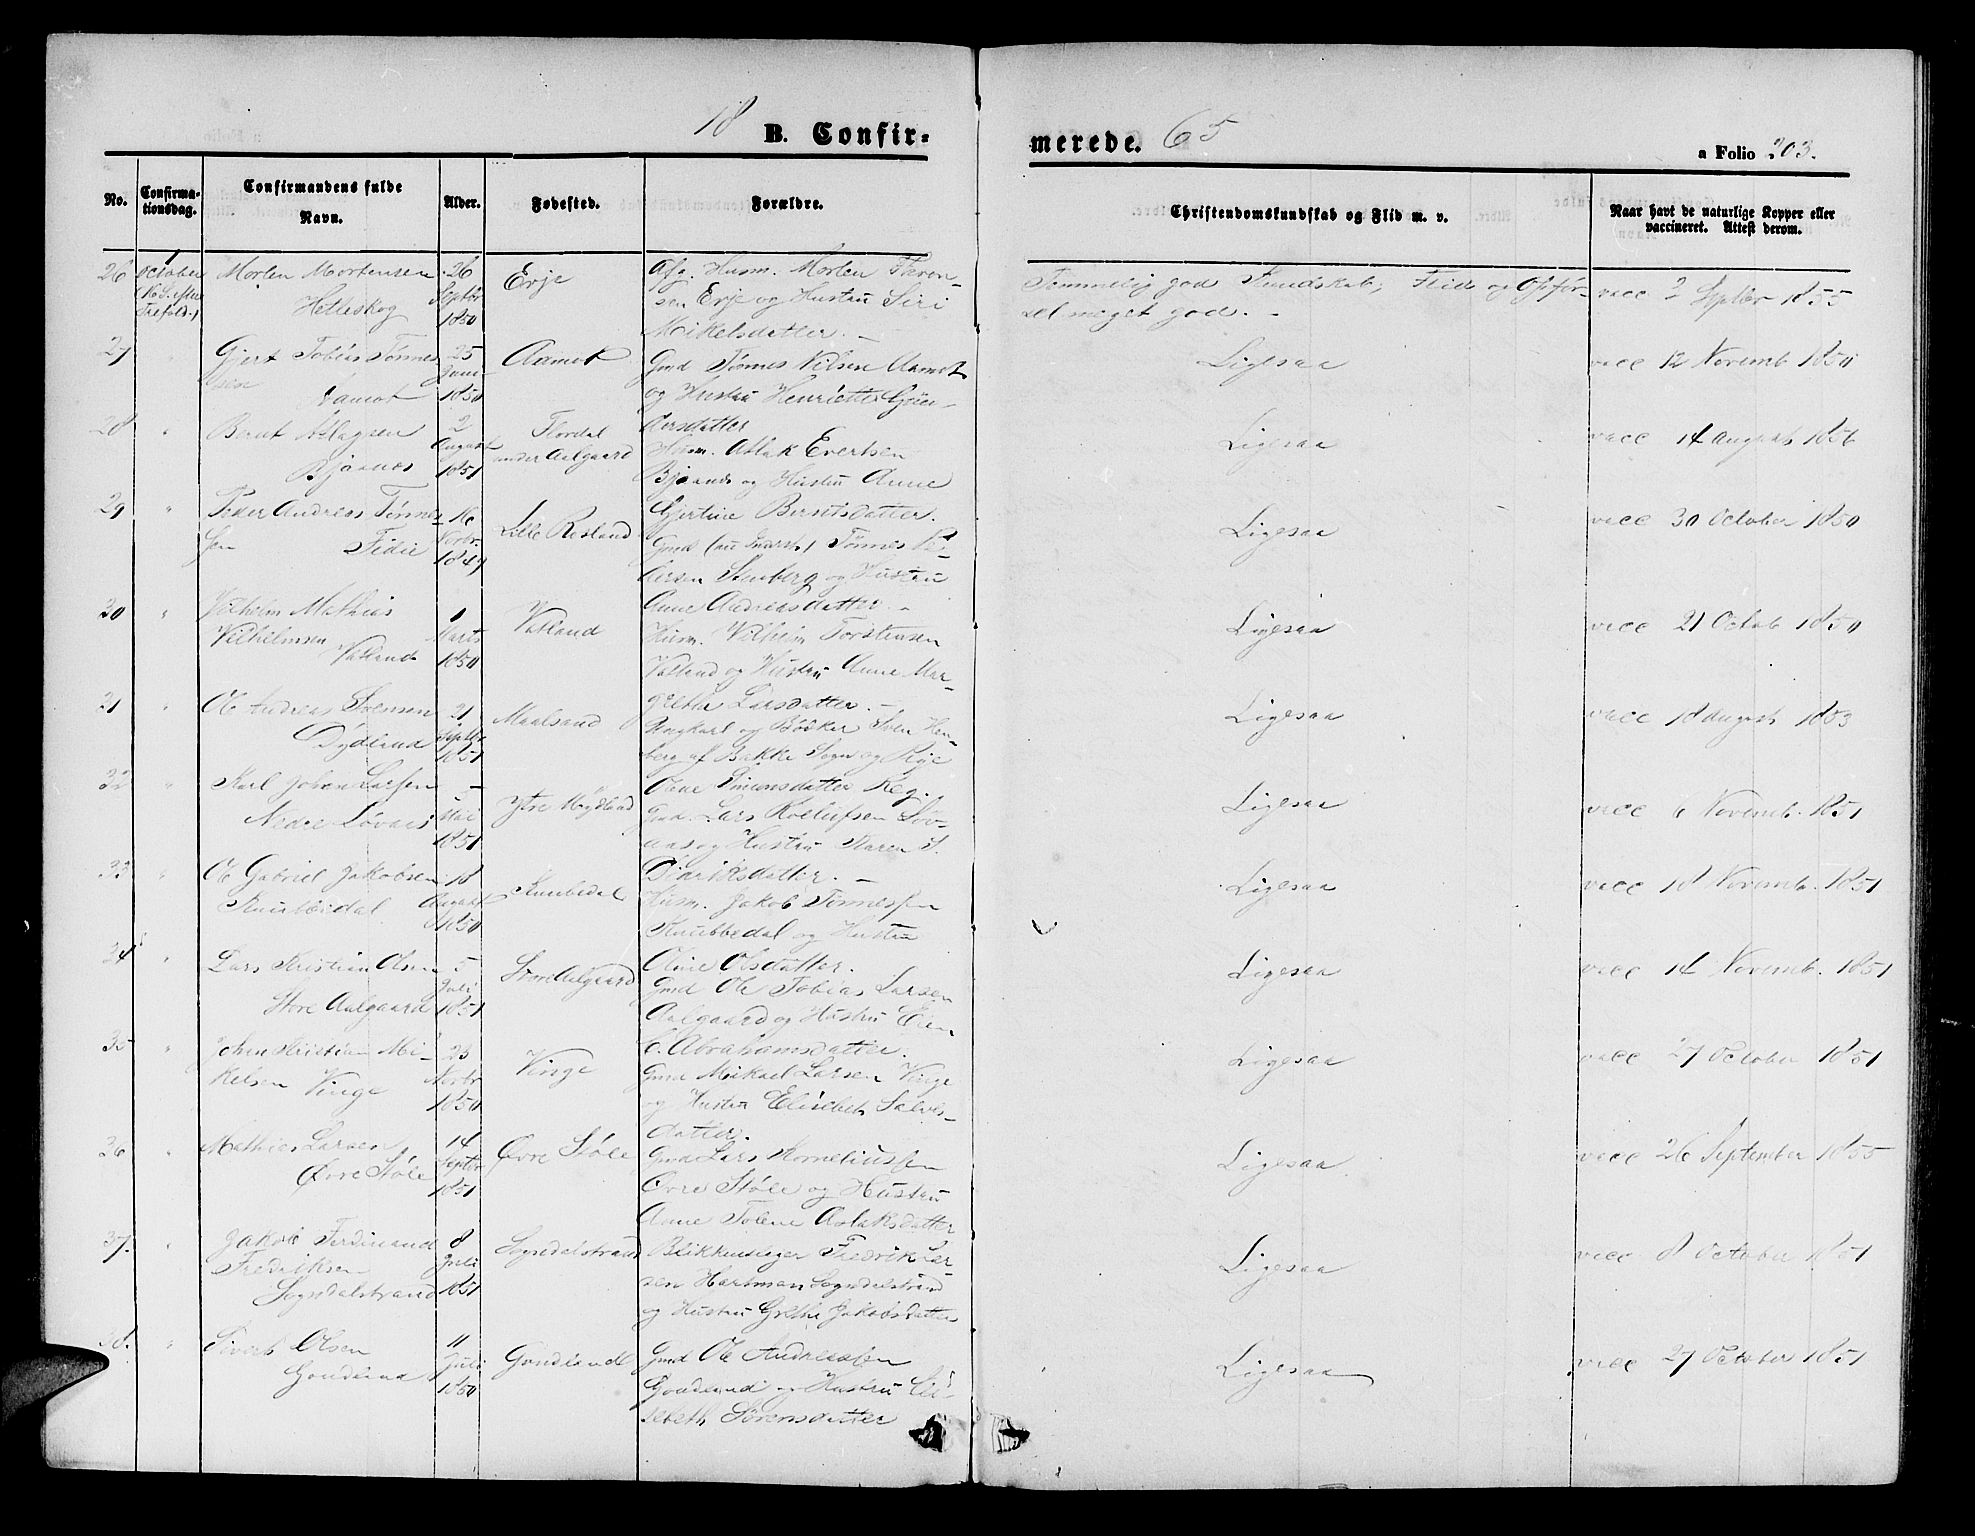 18 B. Confir-
merede. 65
a Folio 203.
No.
Confirma-
tionsdag.
Confirmandens fulde
Navn.
Alder.
Fødested.
Forældre.
Christendomskundskab og Flid m. v.
Naar havt de naturlige Kopper eller
vaccineret. Attest derom.
26
1
October
Morten Mortensen
Helleskog
26
Septbr
1850
Erje
Afg. Husm. Morten
Erje og Hustru Siri
Mikelsdatter. —
Temmelig god Kundskab, Flid og Opfør-
sel meget god. -
vacc 2 Septbr 1855
27
"
Gjert Tobias Tønnes
sen
Aamot
25
Juni
1850
Aamot
Gmd Tønnes Nilsen Aamot
og Hustru Henriette
datter
Ligesaa
vacc 12 Novemb 1850
28
"
Bernt Atlagsen
Bjånnes
2
August
1851
Flordal
under Aalgaard
Husm. Atlak Evertsen
og Hustru Anne
Gjertine Berntsdatter.
Ligesaa
vacc 14 August 1856
29
"
Peder Andreas Tønnes
sen Fidje
16
Novbr.
1849
Lille Resland
Gmd Tønnes Pe-
dersen Stenberg og Hustru
Anne Andreasdatter. -
Ligesaa
vacc 30 October 1850
30
"
Vilhelm Mathias
Vilhelmsen
Vatland
1
Marts
1850
Vatland
Husm. Vilhelm Torstensen
Vatland og Hustru Anne Mar-
grethe Larsdatter. -
Ligesaa
vacc 21 Octob 1850
31
"
Ole Andreas Svensen
Dydland
21
Septbr
1851
Maalsand
Ungkarl og Bødker Sven Hen-
berg af Bakke Sogn og Pige
Olene Simonsdatter Reg.
Ligesaa
vacc 18 August 1853
32
"
Karl Johan Larsen
Nedre Løvaas
5
Mai
1851
Ytre Mydland
Gmd. Lars Roelufsen Løv-
aas og Hustru Karen S.
Dinriksdatter. —
Ligesaa
vacc 6 Novemb. 1851
33
"
Ole Gabriel Jakobsen
Knubedal
18
August
1850
Knubedal
Husm. Jakob Tønnessen
Knubbedal og Hustru
Oline Olsdatter.
Ligesaa
vacc 18 Novemb. 1851
34
"
Lars Kristian Olsen
Store Aalgaard
5
Juli
1851
Store Aalgaard
Gmd Ole Tobias Larsen
Aalgaard og Hustru Elen
C. Abrahamsdatter.
Ligesaa
vacc 14 Novemb. 1851
35
"
Johan Kristian Mi-
kelsen Vinge
23
Novbr
1850
Vinge
Gmd Mikael Larsen Vinge
og Hustru Elisebet Salves-
datter.
Ligesaa
vacc 27 October 1851
36
"
Mathias Larsen
Øvre Støle
14
Septbr
1851
Øvre Støle
Gmd Lars Korneliussen
Øvre Støle og Hustru
Anne Tolene Aslaksdatter
Ligesaa
vacc 26 September 1855
37.
"
Jakob Ferdinand
Fredriksen
Sogndalstrand
8
Juli
1851
Sogndalstrand
Blikkenslager Fredrik Lar-
sen Hartman Sogndalstrand
og Hustru Grethe Jakobsdatter
Ligesaa
vacc 8 October 1851
38.
"
Sivert Olsen
Goudland
11
Juli
1850
Goudland
Gmd Ole Andreassen
Goudland og Hustru Eli-
sebeth Sørensdatter
Ligesaa
vacc 27 October 1851